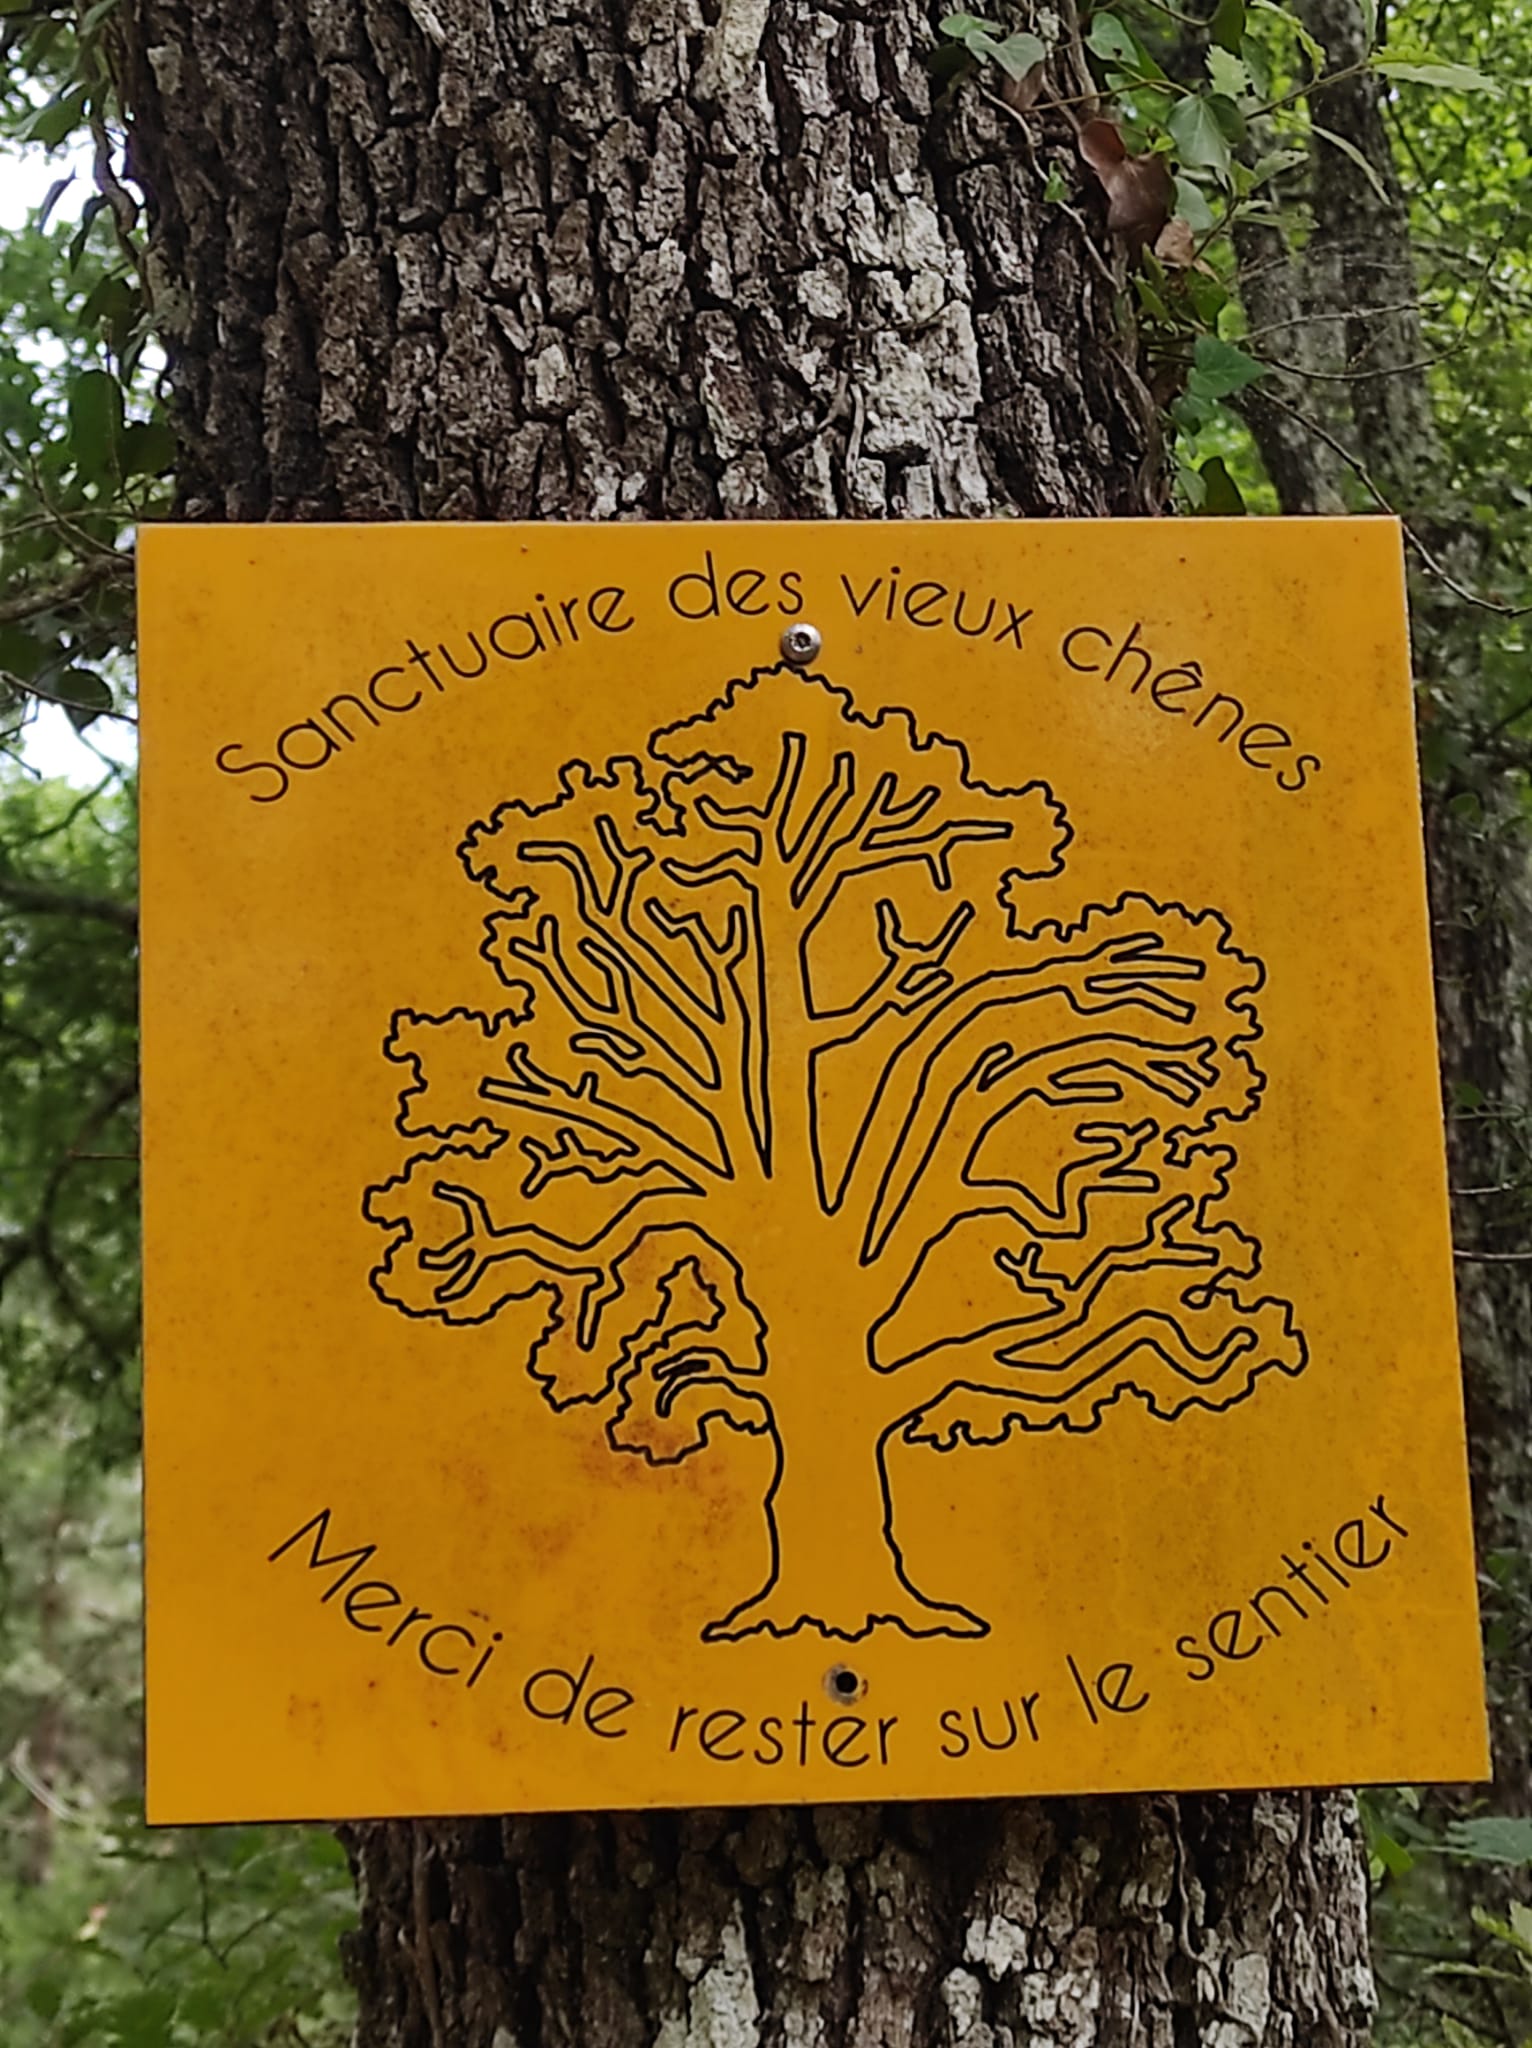 Sanctuaire des vieux chênes
Merci de rester sur le sentier